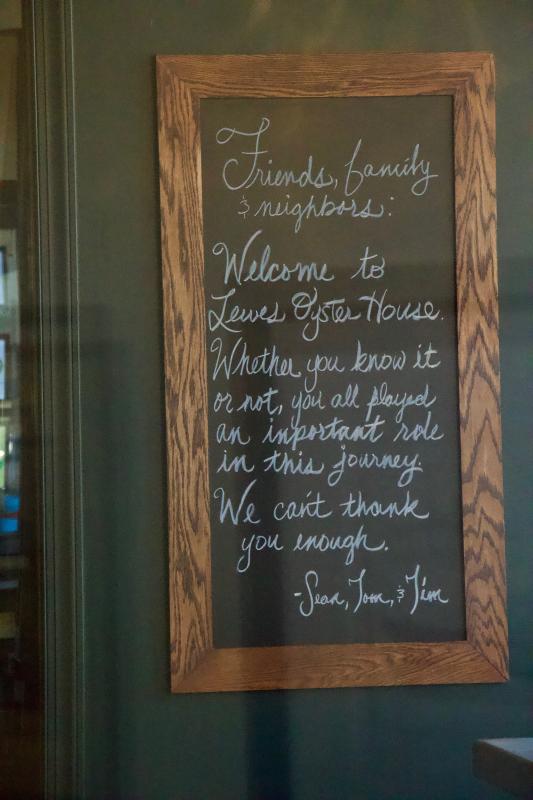 Friends, family
& neighbors:
Welcome to
Lewes Oyster House.
Whether you know it
or not, you all played
an important role
in this journey.
We can't thank
you enough.
-Sean, Tom, & Tim